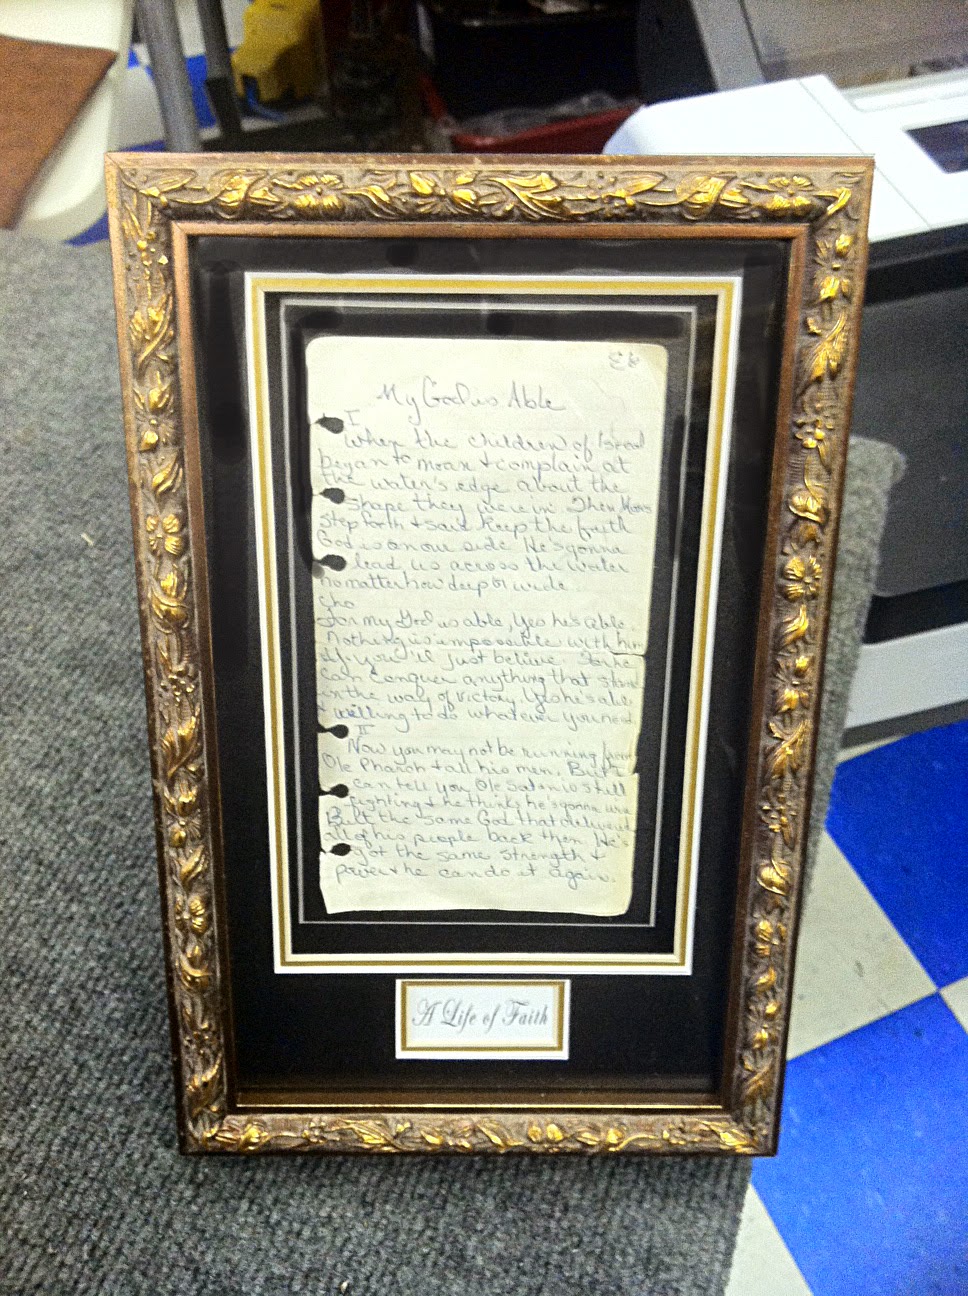 My God is Able
I
When the children of Isreal
began to moan + complain at
the water's edge about the
shape they were in Then Moses
step forth + said keep the faith
God is on our side He's gonna
lead us across the water
no matter how deep or wide
Cho
For my God is able, Yes he's able
Nothing is impossible with him
If you'll just believe
can conquer anything that stands
in the way of victory. Yes he's able
+ willing to do whatever you need
II
Now you may not be running from
Ole Pharoh + all his men. But I
can tell you Ole Satan is still
fighting + he thinks he's gonna win
But the same God that delivered
all of his people back then He's
got the same strength +
power + he can do it again.
A Life of Faith